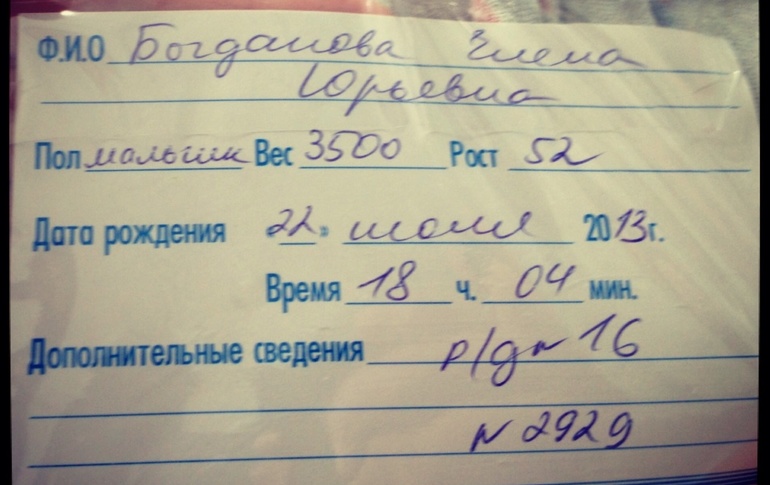 Ф.И.О Богданова Елена
Юрьевна
Пол мальчик Вес 3500 Рост 52
Дата рождения 22 » июля 2013г.
Время 18 ч. 04 мин.
Дополнительные сведения р/д № 16
№ 2929